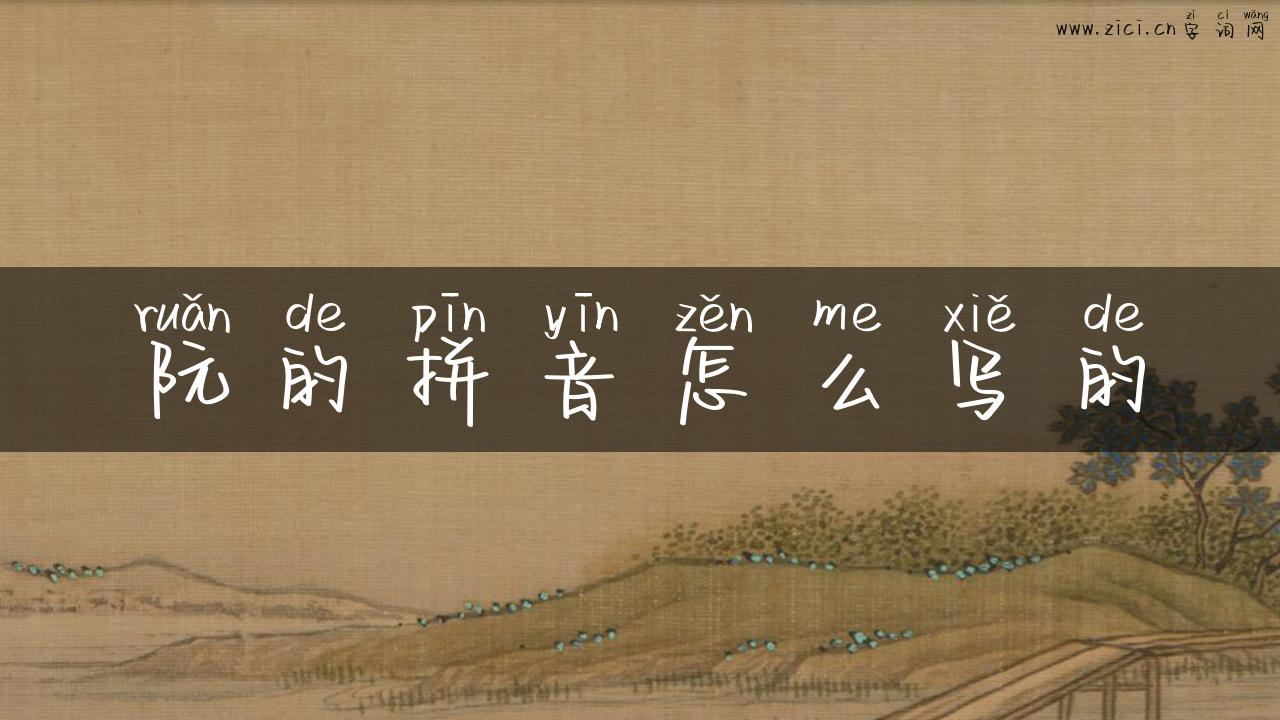 zì cí wǎng
www.zici.cn字词网
ruǎn de pīn yīn zěn me xiě de
阮的拼音怎么写的